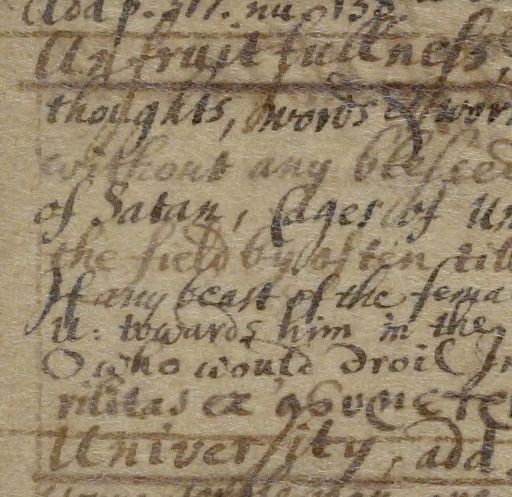 Add p. 317. nu. 135
Unfruitfullness,
thoughts, words & wor
without any blessed
of Satan, Cages of un
the field by often till
If any beast of the fema
u: towards him in the
O who would droil In
rilitas ex
University, add